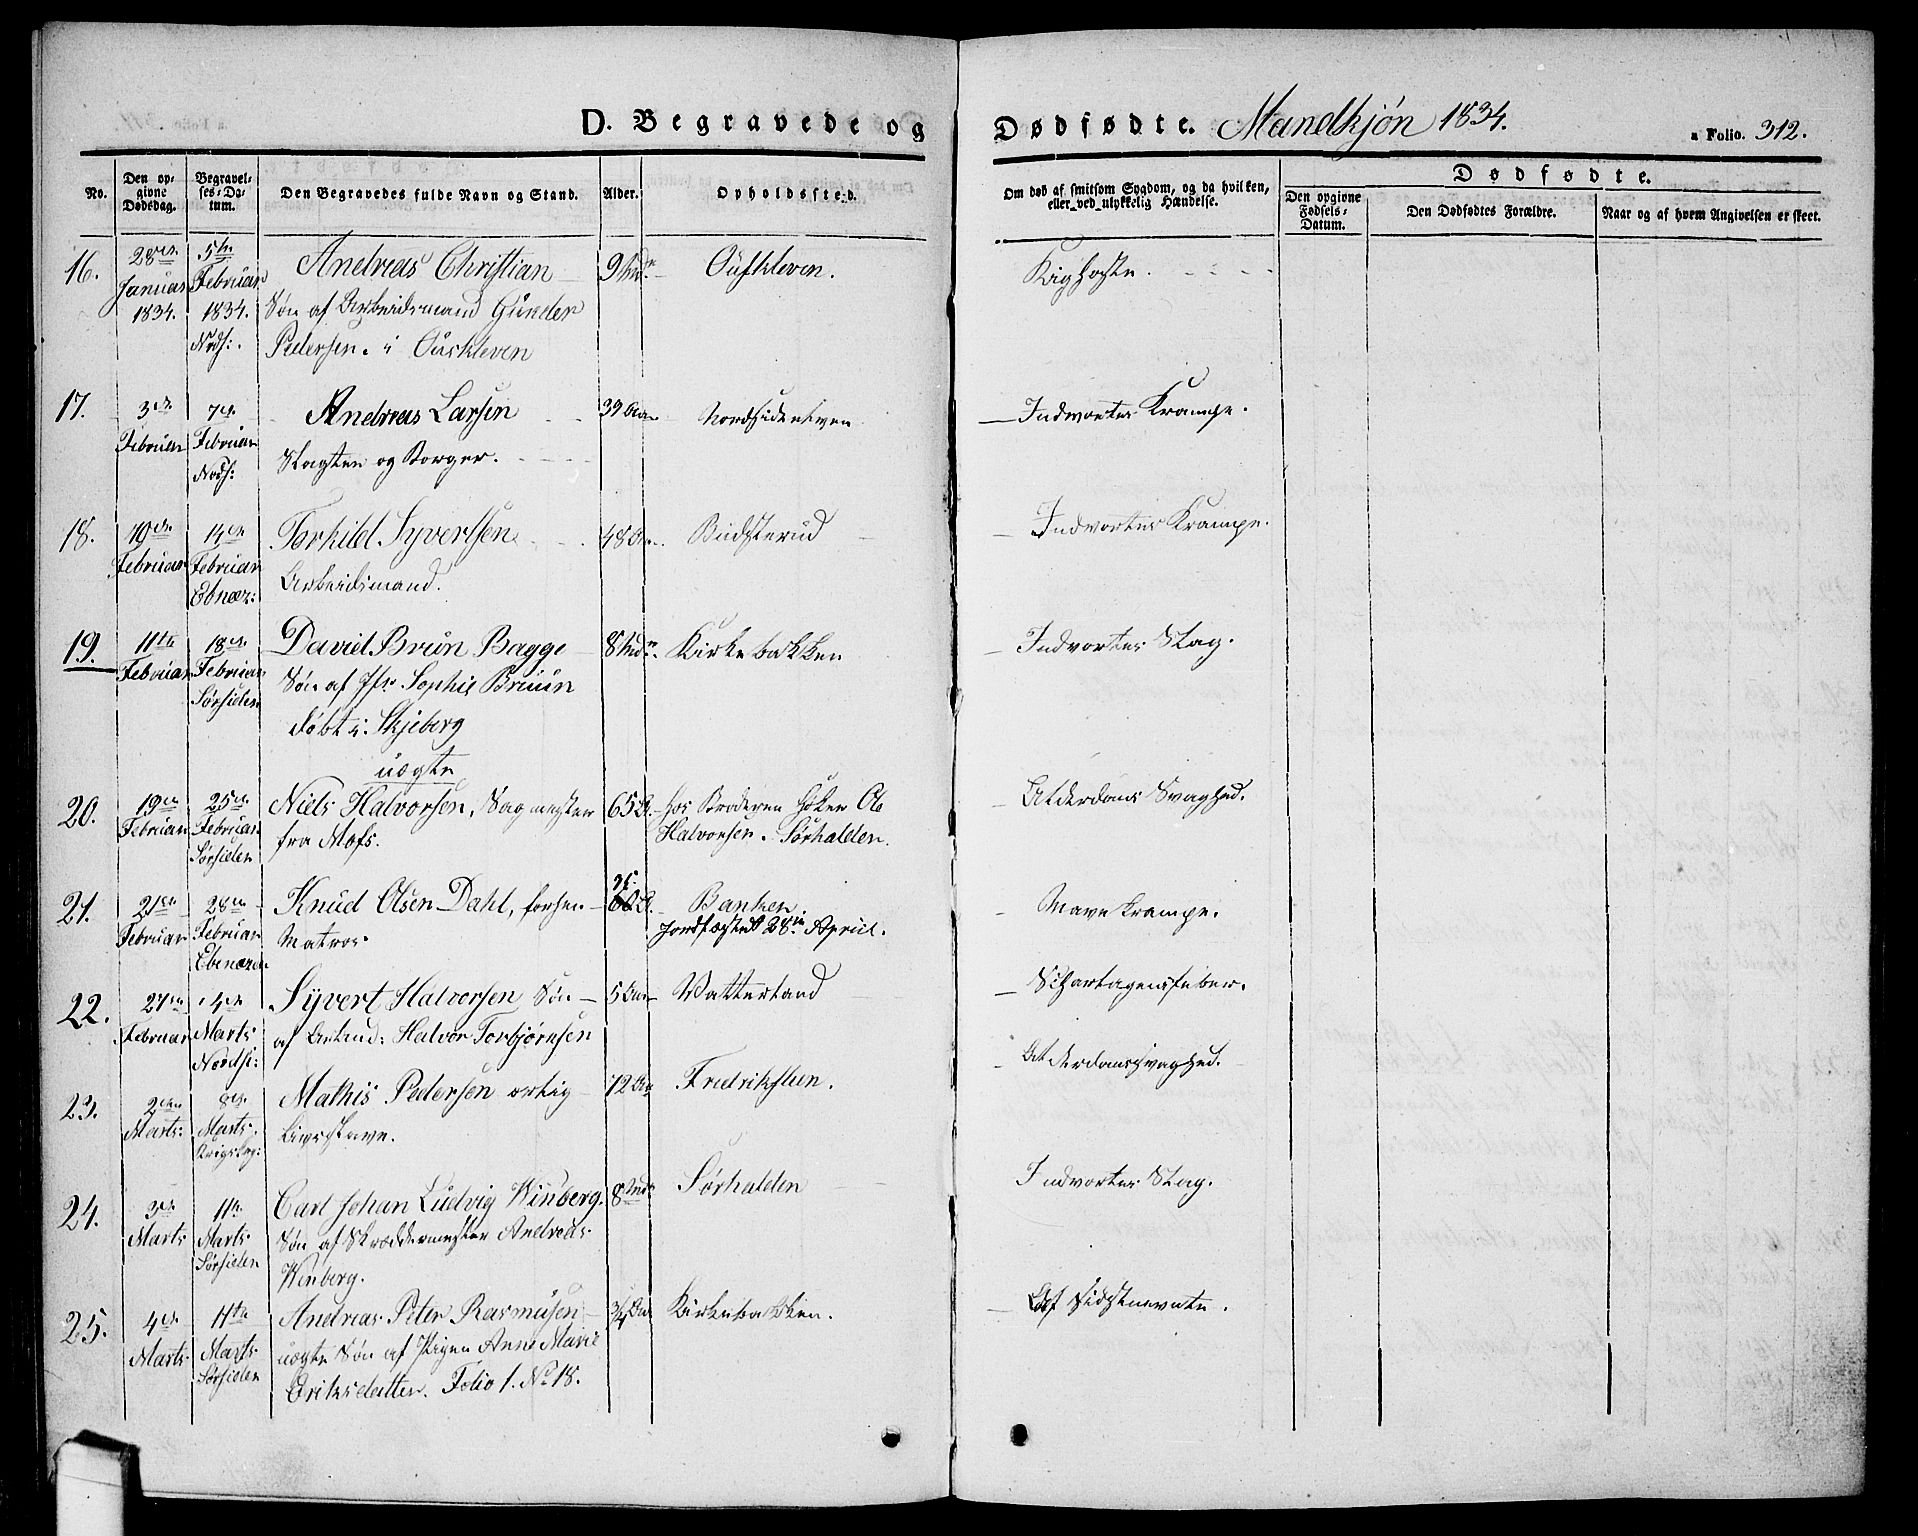 D. Begravede og Dødfødte. Mandkjøn 1834. a Folio. 312.
No.
Den opgivne Dødsdag.
Begravelses-Datum.
Den Begravedes fulde Navn og Stand.
Alder.
Opholdssted.
Om død af smitsom Sygdom, og da hvilken, eller ved ulykkelig Hændelse.
Dødfødte.
Den opgivne Fødsels-Datum.
Den Dødfødtes Forældre.
Naar og af hvem Angivelsen er skeet.
16. 28de 5te Andreas Christian 9 Md. Ouskleven. Kighoste.
Januar Februar
1834. 1834. Søn af Arbeidsmand Gunder
Nords: Pedersen i Ouskleven
17. 3de 7de Andreas Larsen 39 Aar Indvortes Krampe.
Februar Februar
Nords: Slagter og Borger.
18. 10de 14de Torkild Syvertsen 48 Aar Budsterud Indvortes Krampe.
Februar Februar
Ebnæz: Arbeidsmand.
19. 11te 18de David Brun Bagge 8 Md. Kirkebakken Indvortes Slag.
Februar Februar Søn af Jfr. Sophie Bruun
Sørsiden døbt i Skjeberg
uægte
20. 19de 25de Niels Halvorsen, Sagmester 65 A. hos Broderen Høker Ol. Alderdoms Svaghed.
Februar Februar fra Moss. Halvorsen. Sørhalden.
Sørsiden
21. 21de 28de Knud Olsen Dahl, forhen 35. Banken Mavekrampe.
Februar Februar Matros Jordfæstet 28de April.
Ebenæzer
22. 27de 4de Syvert Halvorsen Søn 5 Aar Watterland Scharlagensfeber.
Februar Marts af Arbmd: Halvor Torbjørnsen
Nordsi:
23. 2den 8de Mathis Pedersen 72 Aar Fredrikssteen. Alderdomssvaghed.
Marts: Marts.
Krigskeg:
24. 3de 11te Carl Johan Ludvig Winberg. 8 Md. Sørhalden Indvortes Slag.
Marts Marts Søn af Skræddermester Andreas
Sørsiden Winberg.
25. 4de 11te Andreas Peter Rasmusen 3/4 Aar Kirkebakken.
Marts Marts uægte Søn af Pigen Anne Marie
Sørsiden Eriksdatter. Folio 1. No 18.